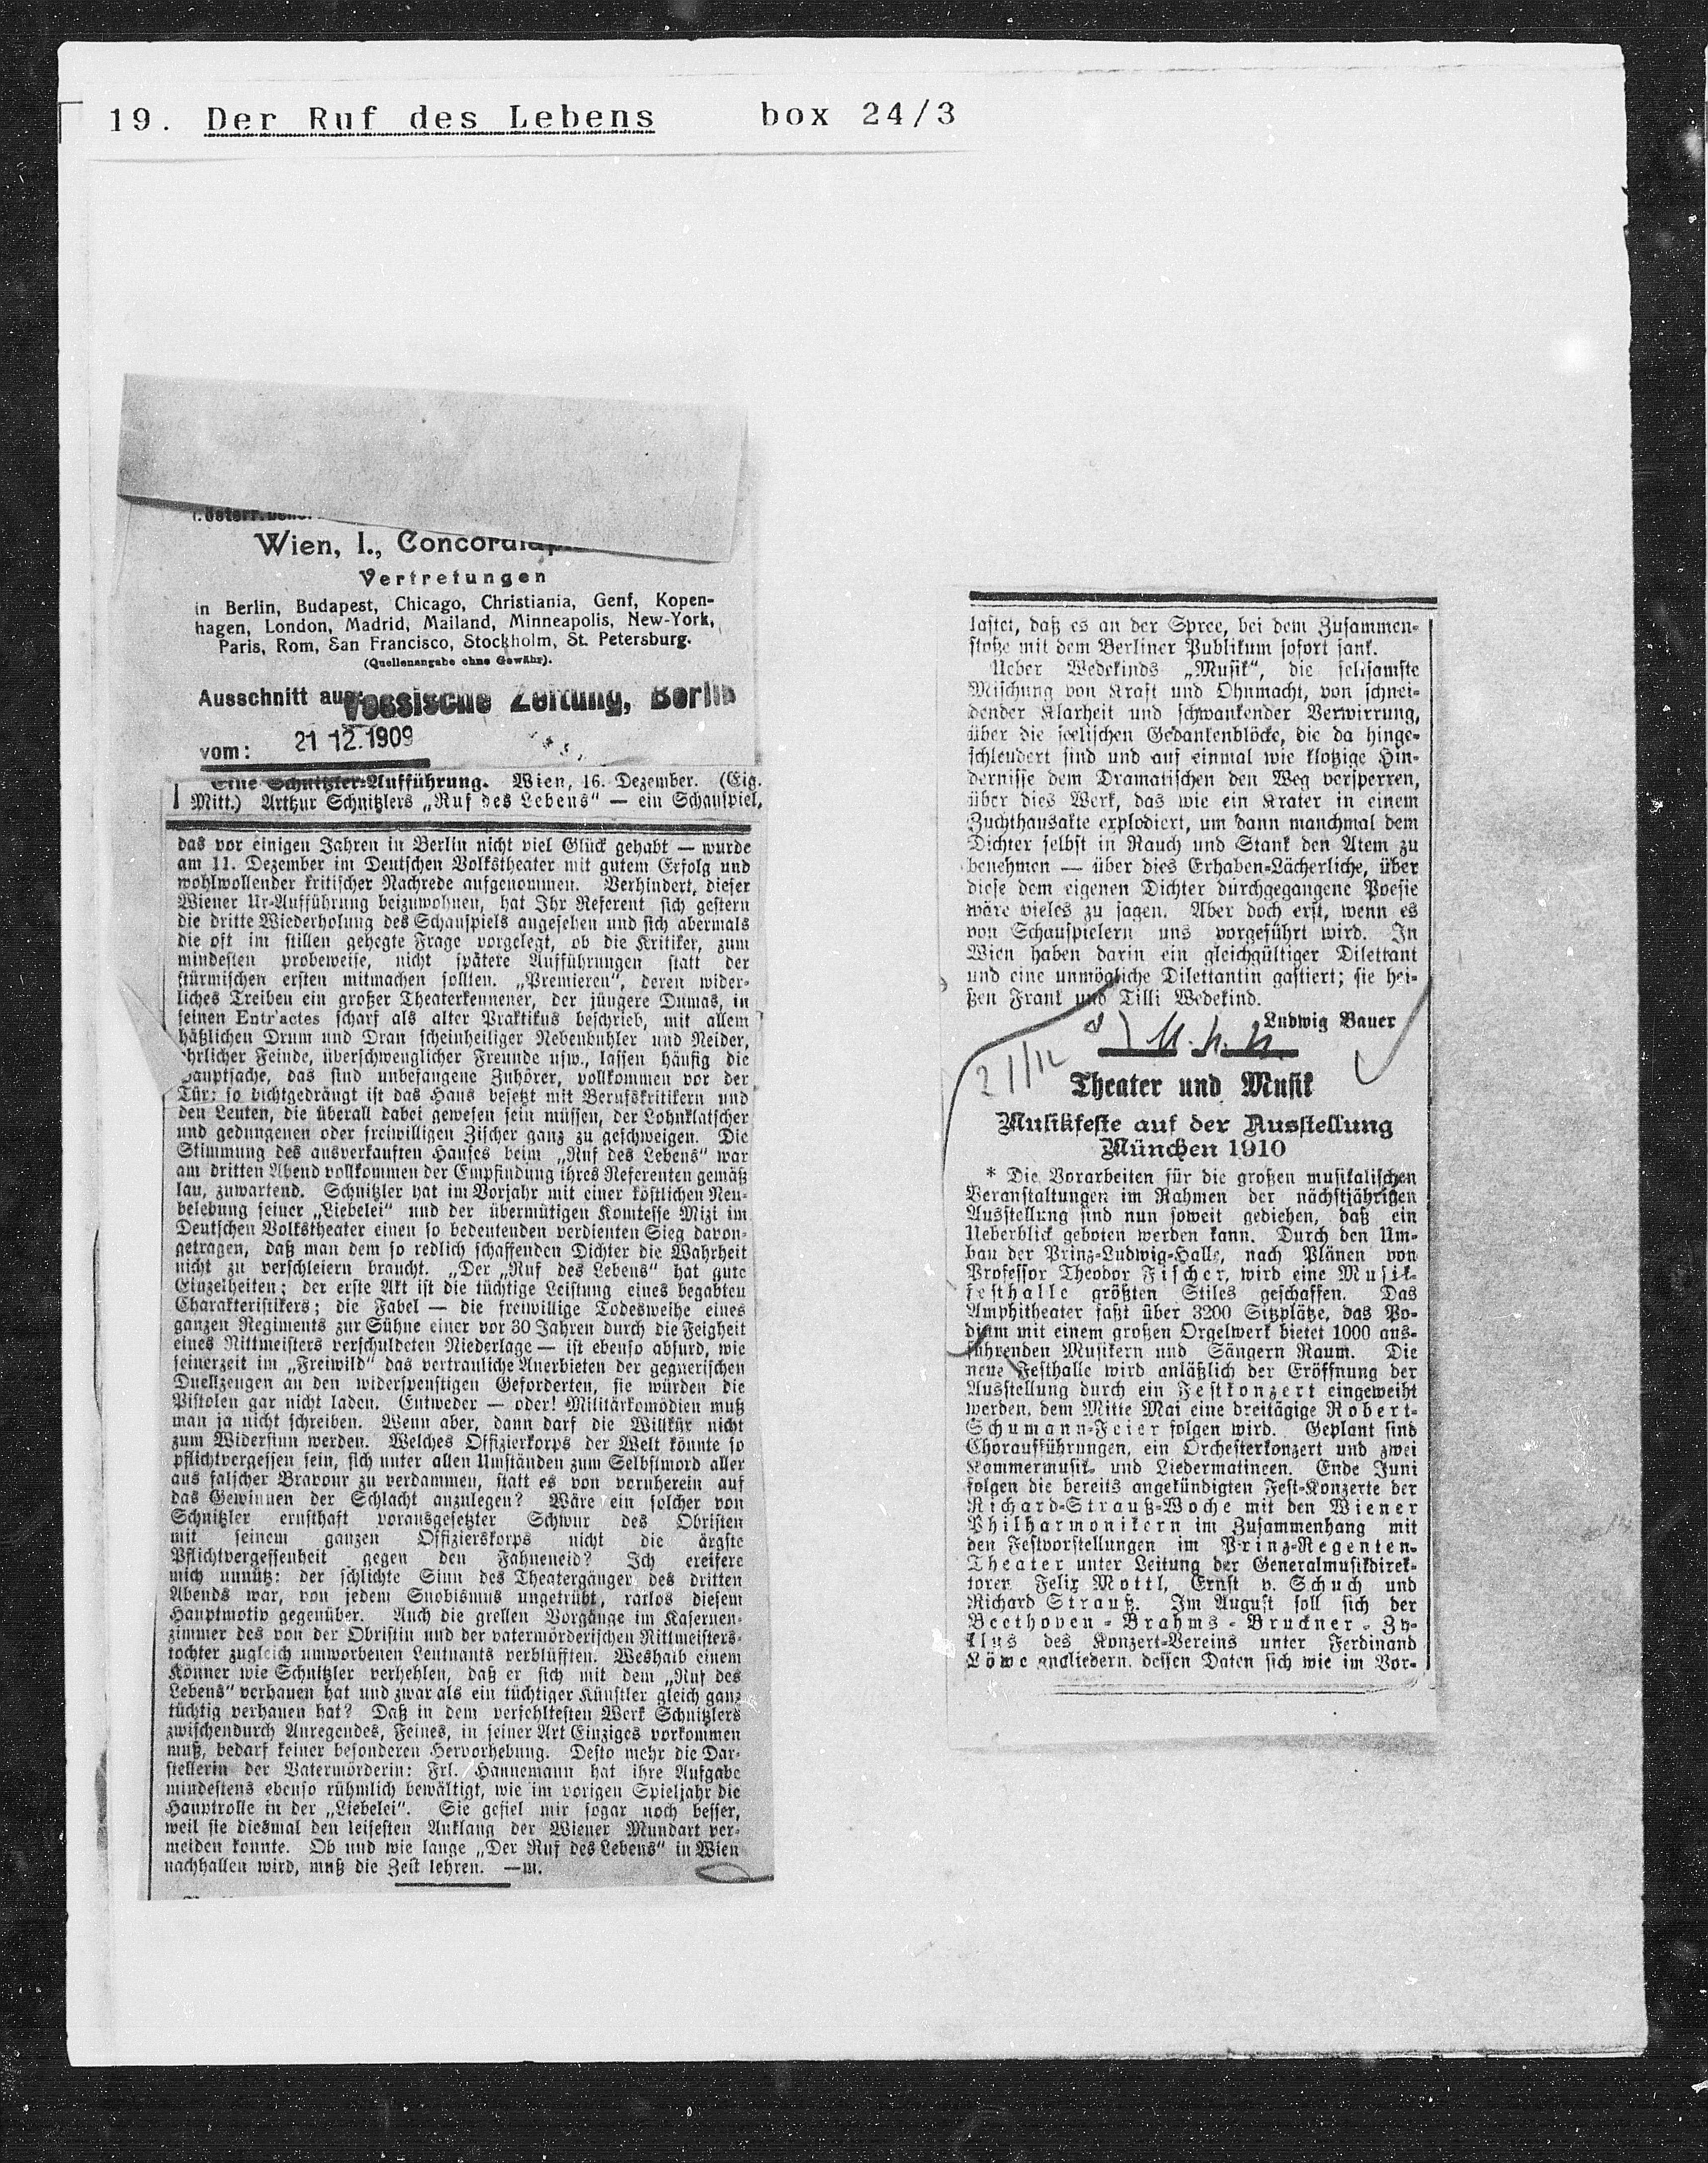 19. Der Ruf des Lebens box 24/3
Wien, I.,
Vertretungen
in Berlin, Budapest, Chicago, Christiania, Genf, Kopen-
hagen, London, Madrid, Mailand, Minneapolis, New-York,
Paris, Rom, San Francisco, Stockholm, St. Petersburg.
(Quellenangabe ohne Gewähr).
Ausschnitt aus: Vossische Zeitung, Berlin
vom: 21 12.1909
Eine Schnitzler-Aufführung. Wien, 16. Dezember. (Eig.
Mitt.) Arthur Schnitzlers „Ruf des Lebens“ — ein Schauspiel,
das vor einigen Jahren in Berlin nicht viel Glück gehabt — wurde
am 11. Dezember im Deutschen Volkstheater mit gutem Erfolg und
wohlwollender kritischer Nachrede aufgenommen. Verhindert, dieser
Wiener Ur-Aufführung beizuwohnen, hat Ihr Referent sich gestern
die dritte Wiederholung des Schauspiels angesehen und sich abermals
die oft im stillen gehegte Frage vorgelegt, ob die Kritiker, zum
mindesten probeweise, nicht spätere Aufführungen statt der
stürmischen ersten mitmachen sollten. „Premieren“, deren wider-
liches Treiben ein großer Theaterkennener, der jüngere Dumas, in
seinen Entr'actes scharf als alter Praktikus beschrieb, mit allem
häßlichen Drum und Dran scheinheiliger Nebenbuhler und Neider,
ehrlicher Feinde, überschwenglicher Freunde usw., lassen häufig die
Hauptsache, das sind unbefangene Zuhörer, vollkommen vor der
Tür: so dichtgedrängt ist das Haus besetzt mit Berufskritikern und
den Leuten, die überall dabei gewesen sein müssen, der Lohnklatscher
und gedungenen oder freiwilligen Zischer ganz zu geschweigen. Die
Stimmung des ausverkauften Hauses beim „Ruf des Lebens“ war
am dritten Abend vollkommen der Empfindung ihres Referenten gemäß
lau, zuwartend. Schnitzler hat im Vorjahr mit einer köstlichen Neu-
belebung seiner „Liebelei“ und der übermütigen Komtesse Mizi im
Deutschen Volkstheater einen so bedeutenden verdienten Sieg davon-
getragen, daß man dem so redlich schaffenden Dichter die Wahrheit
nicht zu verschleiern braucht. „Der „Ruf des Lebens“ hat gute
Einzelheiten; der erste Akt ist die tüchtige Leistung eines begabten
Charakteristikers; die Fabel — die freiwillige Todesweihe eines
ganzen Regiments zur Sühne einer vor 30 Jahren durch die Feigheit
eines Rittmeisters verschuldeten Niederlage — ist ebenso absurd, wie
seinerzeit im „Freiwild“ das vertrauliche Anerbieten der gegnerischen
Duellzeugen an den widerspenstigen Geforderten, sie würden die
Pistolen gar nicht laden. Entweder — oder! Militärkomödien muß
man ja nicht schreiben. Wenn aber, dann darf die Willkür nicht
zum Widersinn werden. Welches Offizierkorps der Welt könnte so
pflichtvergessen sein, sich unter allen Umständen zum Selbstmord aller
aus falscher Bravour zu verdammen, statt es von vornherein auf
das Gewinnen der Schlacht anzulegen? Wäre ein solcher von
Schnitzler ernsthaft vorausgesetzter Schwur des Obristen
mit seinem ganzen Offizierskorps nicht die ärgste
Pflichtvergessenheit gegen den Fahneneid? Ich ereifere
mich unnütz: der schlichte Sinn des Theatergänger des dritten
Abends war, von jedem Snobismus ungetrübt, ratlos diesem
Hauptmotiv gegenüber. Auch die grellen Vorgänge im Kasernen-
zimmer des von der Obristin und der vatermörderischen Rittmeisters-
tochter zugleich umworbenen Leutnants verblüfften. Weshalb einem
Könner wie Schnitzler verhehlen, daß er sich mit dem „Ruf des
Lebens“ verhauen hat und zwar als ein tüchtiger Künstler gleich ganz
tüchtig verhauen hat? Daß in dem verfehltesten Werk Schnitzlers
zwischendurch Anregendes, Feines, in seiner Art Einziges vorkommen
muß, bedarf keiner besonderen Hervorhebung. Desto mehr die Dar-
stellerin der Vatermörderin: Frl. Hannemann hat ihre Aufgabe
mindestens ebenso rühmlich bewältigt, wie im vorigen Spieljahr die
Hauptrolle in der „Liebelei“. Sie gefiel mir sogar noch besser,
weil sie diesmal den leisesten Anklang der Wiener Mundart ver-
meiden konnte. Ob und wie lange „Der Ruf des Lebens“ in Wien
nachhallen wird, muß die Zeit lehren. —m.
lastet, daß es an der Spree, bei dem Zusammen-
stoße mit dem Berliner Publikum sofort sank.
Ueber Wedekinds „Musik“, die seltsamste
Mischung von Kraft und Ohnmacht, von schnei-
dender Klarheit und schwankender Verwirrung,
über die seelischen Gedankenblöcke, die da hinge-
schleudert sind und auf einmal wie klotzige Hin-
dernisse dem Dramatischen den Weg versperren,
über dies Werk, das wie ein Krater in einem
Zuchthausakte explodiert, um dann manchmal dem
Dichter selbst in Rauch und Stank den Atem zu
benehmen — über dies Erhaben-Lächerliche, über
diese dem eigenen Dichter durchgegangene Poesie
wäre vieles zu sagen. Aber doch erst, wenn es
von Schauspielern uns vorgeführt wird. In
Wien haben darin ein gleichgültiger Dilettant
und eine unmögliche Dilettantin gastiert; sie hei-
ßen Frank und Tilli Wedekind.
Ludwig Bauer
21/12
Theater und Musik
Musikfeste auf der Ausstellung
München 1910
* Die Vorarbeiten für die großen musikalischen
Veranstaltungen im Rahmen der nächstjährigen
Ausstellung sind nun soweit gediehen, daß ein
Ueberblick geboten werden kann. Durch den Um-
bau der Prinz-Ludwig-Halle, nach Plänen von
Professor Theodor Fischer, wird eine Musik-
festhalle größten Stiles geschaffen. Das
Amphitheater faßt über 3200 Sitzplätze, das Po-
dium mit einem großen Orgelwerk bietet 1000 aus-
führenden Musikern und Sängern Raum. Die
neue Festhalle wird anläßlich der Eröffnung der
Ausstellung durch ein Festkonzert eingeweiht
werden, dem Mitte Mai eine dreitägige Robert-
Schumann-Feier folgen wird. Geplant sind
Choraufführungen, ein Orchesterkonzert und zwei
Kammermusik- und Liedermatineen. Ende Juni
folgen die bereits angekündigten Fest-Konzerte der
Richard-Strauß-Woche mit den Wiener
Philharmonikern im Zusammenhang mit
den Festvorstellungen im Prinz-Regenten-
Theater unter Leitung der Generalmusikdirek-
toren Felix Mottl, Ernst v. Schuch und
Richard Strauß. Im August soll sich der
Beethoven-Brahms-Bruckner-Zy-
klus des Konzert-Vereins unter Ferdinand
Löwe angliedern, dessen Daten sich wie im Vor-